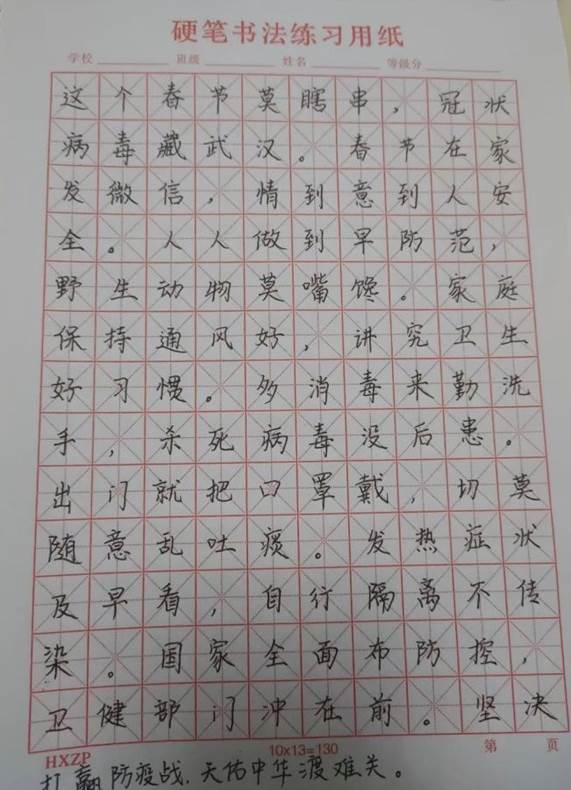 硬笔书法练习用纸
学校 班级 姓名 等级分
这个春节莫瞎串，冠状
病毒藏武汉。春节在家
发微信，情到意到人安
全。人人做到早防范，
野生动物莫嘴馋。家庭
保持通风好，讲究卫生
好习惯。多消毒来勤洗
手，杀死病毒没后患。
出门就把口罩戴，切莫
随意乱吐痰。发热症状
及早看，自行隔离不传
染。国家全面布防控，
卫健部门冲在前。坚决
HXZP 10x13=130 第 页
打赢防疫战.天佑中华渡难关。